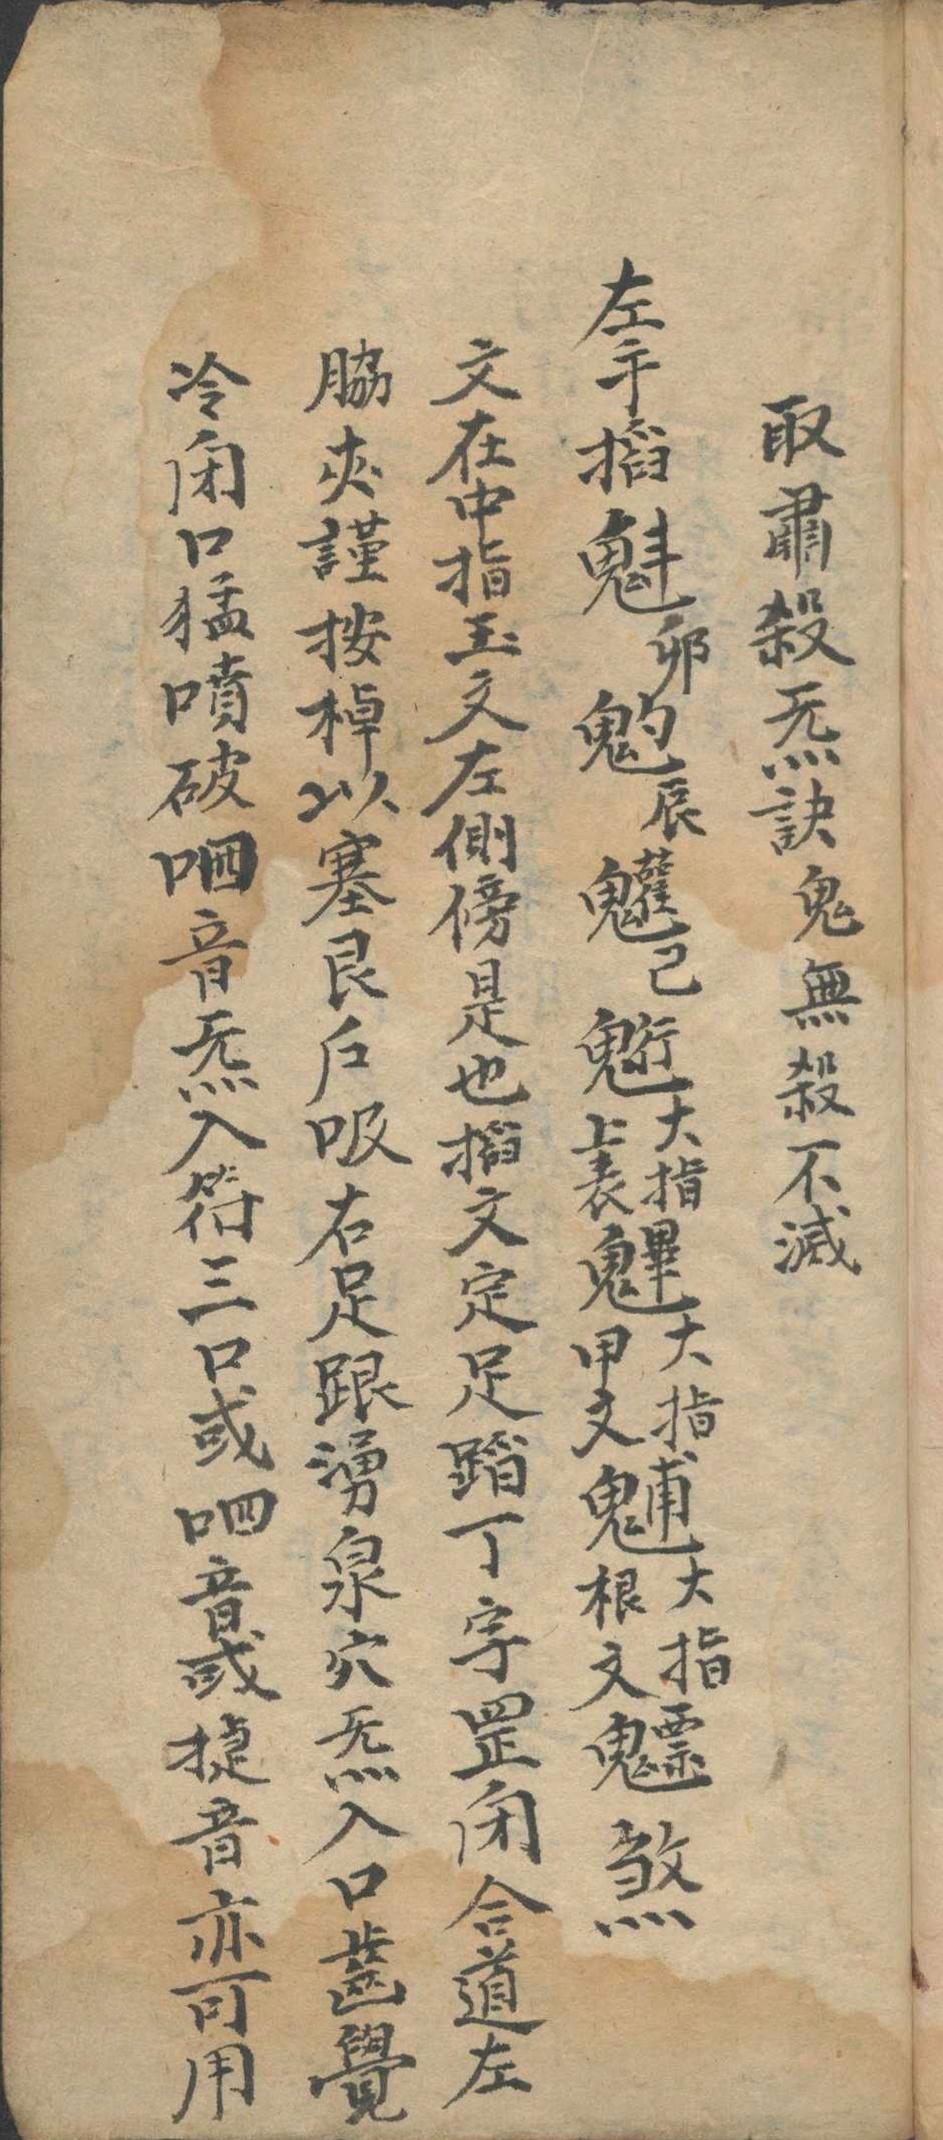 取肅殺炁訣鬼無殺不滅
左手搯魁卯魡辰䰟己䰢大指上表魓大指甲文𩳐大指根文魒煞
文在中指玉文左側傍是也搯文定足蹈丁字罡闭合道左
脇夾謹按棹以塞艮戶吸右足跟湧泉穴炁入口齒覺
冷闭口猛噴破呬音炁入符三口或呬音或揵音亦可用